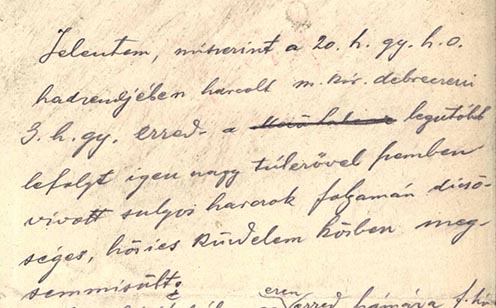 Jelentem, miszerint a 20. h. gy. h.o.
hadrendjében harcolt m. kir. debreceni
3. h. gy. ezred - a legutóbb
lefolyt igen nagy túlerővel szemben
vivott sulyos harcok folyamán dicső-
séges, hősies küzdelem közben meg-
semmisült.
ezen
ezred számára f. hó